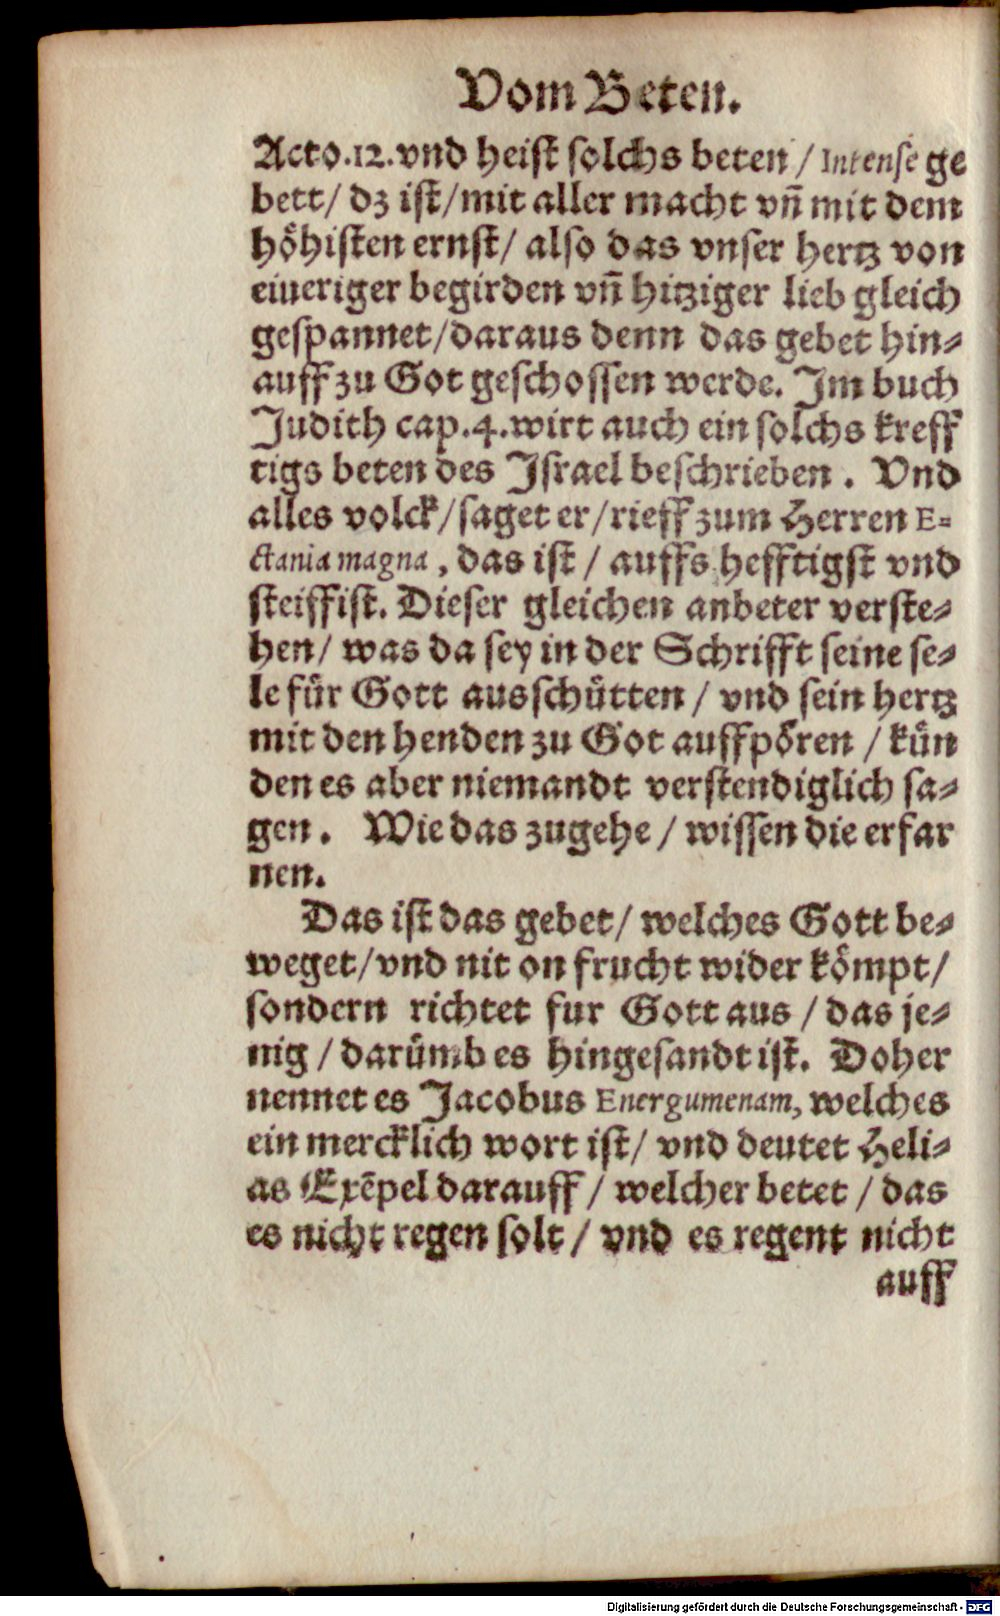 Vom Beten.
Acto.12.vnd heist solchs beten / Intense ge
bett/ dz ist/mit aller macht vñ mit dem
hôhisten ernst/ also das vnser hertz von
eiueriger begirden vñ hitziger lieb gleich
gespannet/daraus denn das gebet hin⸗
auff zu Got geschossen werde. Im buch
Judith cap.4.wirt auch ein solchs kreff
tigs beten des Israel beschrieben. Vnd
alles volck/saget er/rieff zum Herren E⸗
ctania magna, das ist / auffs hefftigst vnd
steiffist. Dieser gleichen anbeter verste⸗
hen/ was da sey in der Schrifft seine se⸗
le fůr Gott ausschůtten / vnd sein hertz
mit den henden zu Got auffpôren / kůn
den es aber niemandt verstendiglich sa⸗
gen. Wie das zugehe / wissen die erfar
nen.
Das ist das gebet/ welches Gott be⸗
weget/vnd nit on frucht wider kômpt/
sondern richtet fur Gott aus / das je⸗
nig / darůmb es hingesandt ist. Doher
nennet es Jacobus Energumenam, welches
ein mercklich wort ist/ vnd deutet Heli⸗
as Exẽpel darauff / welcher betet / das
es nicht regen solt / vnd es regent nicht
auff
Digitalisierung gefördert durch die Deutsche Forschungsgemeinschaft - DFG